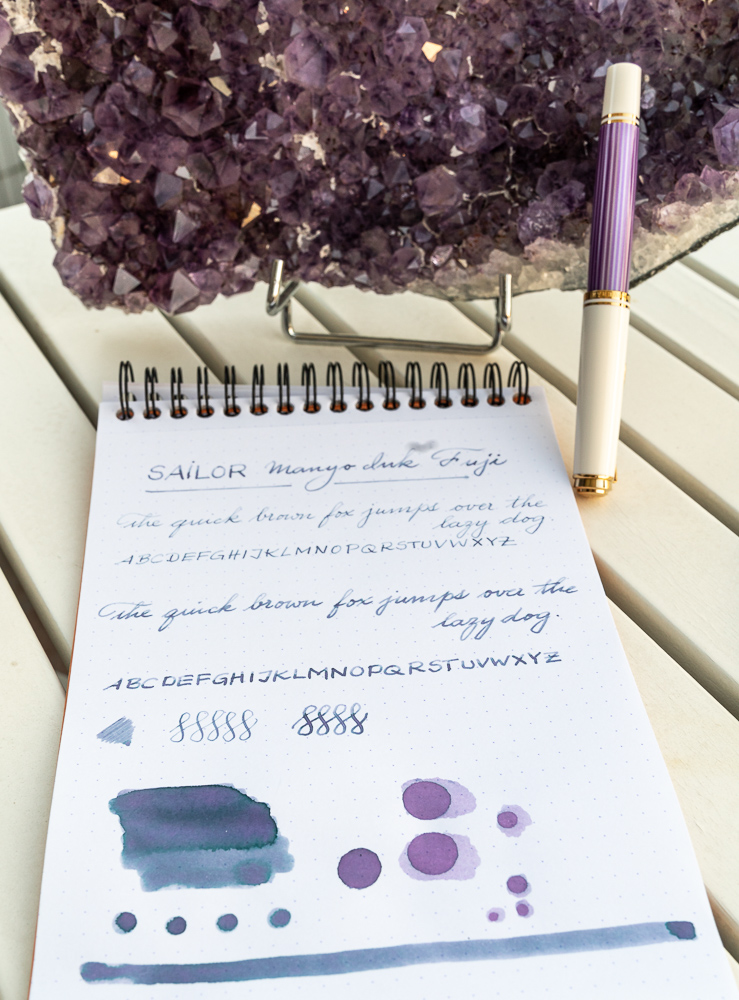 SAILOR manyo ink Fuji
The quick brown fox jumps over the
lazy dog.
ABCDEFGHIJKLMNOPQRSTUVWXYZ
The quick brown fox jumps over the
lazy dog.
ABCDEFGHIJKLMNOPQRSTUVWXYZ